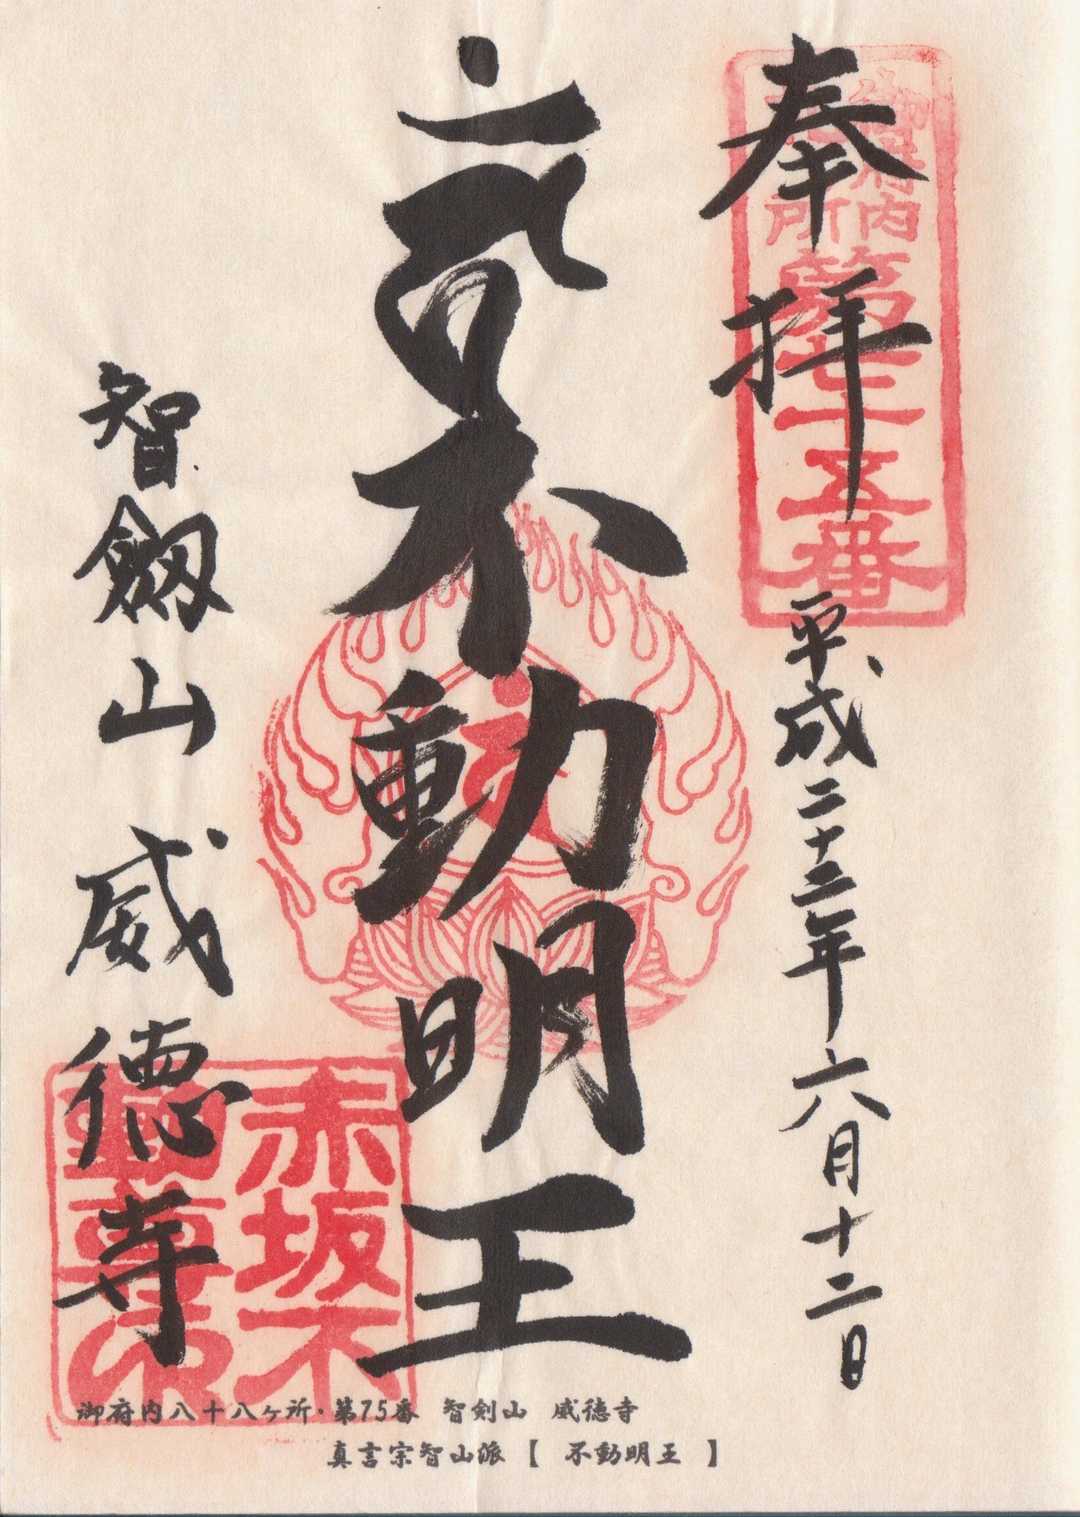 奉拝
御府内
所
第七十五番
平成二十二年六月十二日
不動明王
智劔山
威徳寺
赤坂不
動尊印
御府内八十八ヶ所・第75番　智剣山　威徳寺
真言宗智山派【　不動明王　】